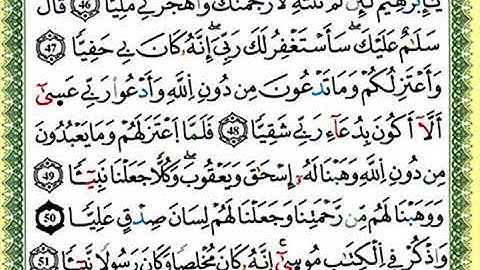 يَٰٓإِبْرَٰهِيمُ لَئِن لَّمْ تَنتَهِ لَأَرْجُمَنَّكَ وَٱهْجُرْنِى مَلِيًّا ٤٦ قَالَ
سَلَٰمٌ عَلَيْكَ سَأَسْتَغْفِرُ لَكَ رَبِّىٓ إِنَّهُۥ كَانَ بِى حَفِيًّا ٤٧
وَأَعْتَزِلُكُمْ وَمَا تَدْعُونَ مِن دُونِ ٱللَّهِ وَأَدْعُوا۟ رَبِّى عَسَىٰٓ
أَلَّآ أَكُونَ بِدُعَآءِ رَبِّى شَقِيًّا ٤٨ فَلَمَّا ٱعْتَزَلَهُمْ وَمَا يَعْبُدُونَ
مِن دُونِ ٱللَّهِ وَهَبْنَا لَهُۥٓ إِسْحَٰقَ وَيَعْقُوبَ وَكُلًّا جَعَلْنَا نَبِيًّا ٤٩
وَوَهَبْنَا لَهُم مِّن رَّحْمَتِنَا وَجَعَلْنَا لَهُمْ لِسَانَ صِدْقٍ عَلِيًّا ٥٠
وَٱذْكُرْ فِى ٱلْكِتَٰبِ مُوسَىٰٓ إِنَّهُۥ كَانَ مُخْلَصًا وَكَانَ رَسُولًا نَّبِيًّا ٥١